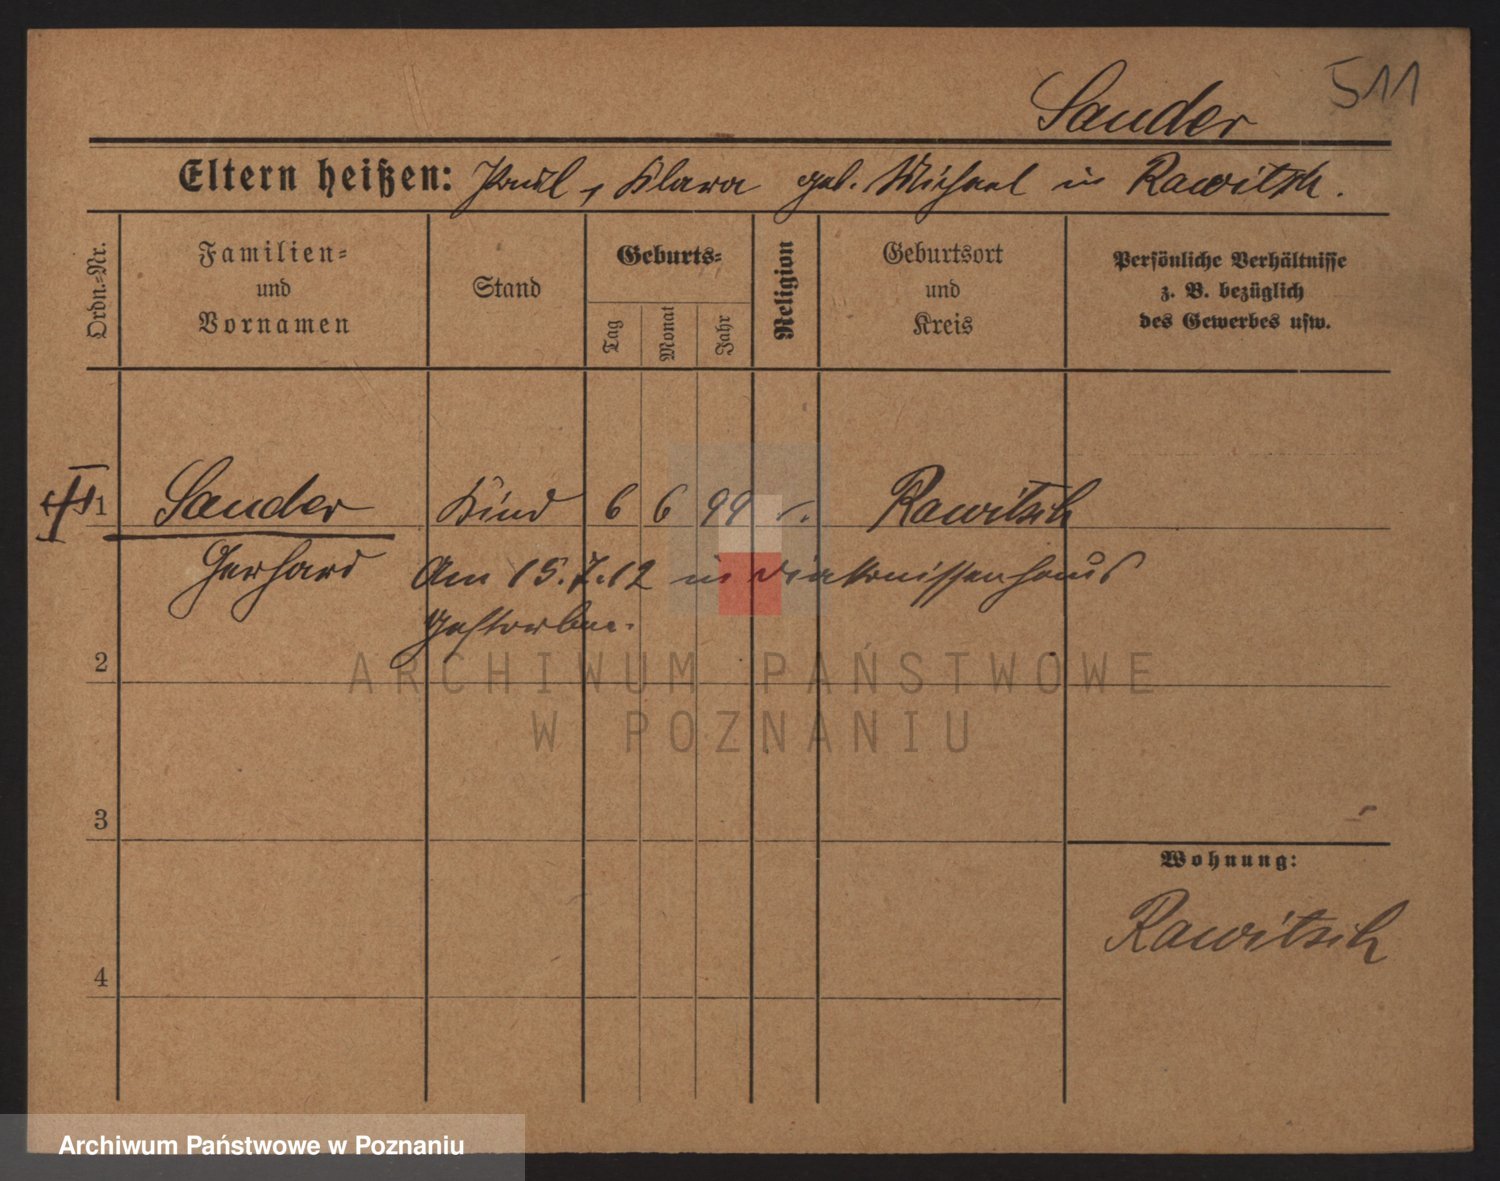 Sander 511
Eltern heißen: Paul, Klara geb. Michael in Rawitsch.
Ordn.-Nr.
Familien-
und
Vornamen
Stand
Geburts-
Tag
Monat
Jahr
Religion
Geburtsort
und
Kreis
Persönliche Verhältnisse
z. B. bezüglich
des Gewerbes usw.
1 Sander Kind 6 6 99 Rawitsch
Gerhard Am 15.7.12 in Diakonissenhaus
gestorben.
2
ARCHIWUM PAŃSTWOWE
W POZNANIU
3
Wohnung:
Rawitsch
4
Archiwum Państwowe w Poznaniu